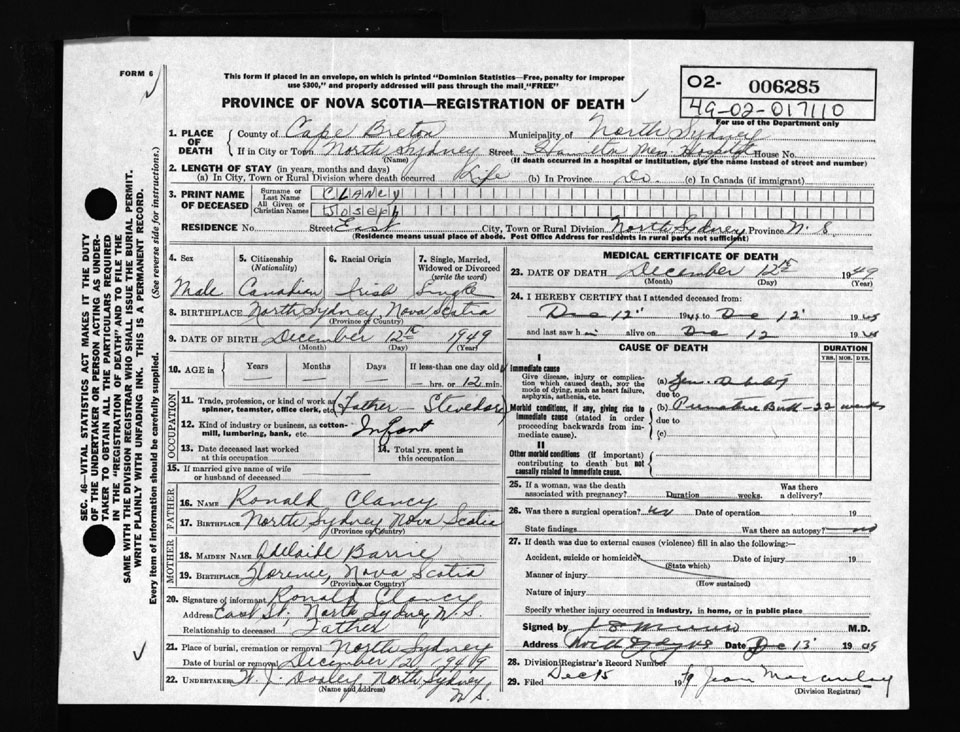 FORM 6
This form if placed in an envelope, on which is printed "Dominion Statistics—Free, penalty for improper
use $300," and properly addressed will pass through the mail "FREE"
O2- 006285
49-02-017110
For use of the Department only
PROVINCE OF NOVA SCOTIA—REGISTRATION OF DEATH
1. PLACE OF DEATH
County of Cape Breton Municipality of North Sydney
If in City or Town North Sydney Street Hamilton Mem. Hospital House No.
(Name) (If death occurred in a hospital or institution, give the name instead of street and number)
2. LENGTH OF STAY (in years, months and days)
(a) In City, Town or Rural Division where death occurred Life (b) In Province Do. (c) In Canada (if immigrant)
3. PRINT NAME OF DECEASED
Surname or Last Name CLANCY
All Given or Christian Names Joseph
RESIDENCE No. Street East City, Town or Rural Division North Sydney Province N. S.
(Residence means usual place of abode. Post Office Address for residents in rural parts not sufficient)
4. Sex 5. Citizenship (Nationality) 6. Racial Origin 7. Single, Married, Widowed or Divorced (write the word)
Male Canadian Irish Single
8. BIRTHPLACE North Sydney, Nova Scotia
(Province or Country)
9. DATE OF BIRTH December 12th 1949
(Month) (Day) (Year)
10. AGE in Years Months Days If less than one day old
hrs. or 12 min.
OCCUPATION
11. Trade, profession, or kind of work as spinner, teamster, office clerk, etc. Father - Stevedore
12. Kind of industry or business, as cotton-mill, lumbering, bank, etc. Infant
13. Date deceased last worked at this occupation
14. Total yrs. spent in this occupation
15. If married give name of wife or husband of deceased
FATHER
16. NAME Ronald Clancy
17. BIRTHPLACE North Sydney Nova Scotia
(Province or Country)
MOTHER
18. MAIDEN NAME Adelaide Barrie
19. BIRTHPLACE Florence, Nova Scotia
(Province or Country)
20. Signature of informant Ronald Clancy
Address East St., North Sydney, N. S.
Relationship to deceased Father
21. Place of burial, cremation or removal North Sydney
Date of burial or removal December 12 1949
22. UNDERTAKER W. J. Dooley, North Sydney N. S.
(Name and address)
MEDICAL CERTIFICATE OF DEATH
23. DATE OF DEATH December 12th 1949
(Month) (Day) (Year)
24. I HEREBY CERTIFY that I attended deceased from
Dec 12 19 to Dec 12 19
and last saw h alive on Dec 12 19
CAUSE OF DEATH
DURATION
YRS. MOS. DYS.
I
Immediate cause
Give disease, injury or complication which caused death, NOT the mode of dying, such as heart failure, asphyxia, asthenia, etc.
(a)
due to
Morbid conditions, if any, giving rise to immediate cause (stated in order proceeding backwards from immediate cause).
(b) Premature Birth - 22 weeks
due to
(c)
II
Other morbid conditions (if important) contributing to death but not causally related to immediate cause.
25. If a woman, was the death associated with pregnancy? Duration weeks. Was there a delivery?
26. Was there a surgical operation? Date of operation 19
State findings Was there an autopsy? no
27. If death was due to external causes (violence) fill in also the following:—
Accident, suicide or homicide? Date of injury 19
(State which)
Manner of injury
(How sustained)
Nature of injury
Specify whether injury occurred in industry, in home, or in public place
Signed by M.D.
Address Date Dec 13 19
28. Division Registrar's Record Number
29. Filed Dec 15 1949 Jean Macaulay
(Division Registrar)
SEC. 46—VITAL STATISTICS ACT MAKES IT THE DUTY
OF THE UNDERTAKER OR PERSON ACTING AS UNDER-
TAKER TO OBTAIN ALL THE PARTICULARS REQUIRED
IN THE "REGISTRATION OF DEATH" AND TO FILE THE
SAME WITH THE DIVISION REGISTRAR WHO SHALL ISSUE THE BURIAL PERMIT.
WRITE PLAINLY WITH UNFADING INK. THIS IS A PERMANENT RECORD.
Every item of information should be carefully supplied. (See reverse side for instructions.)